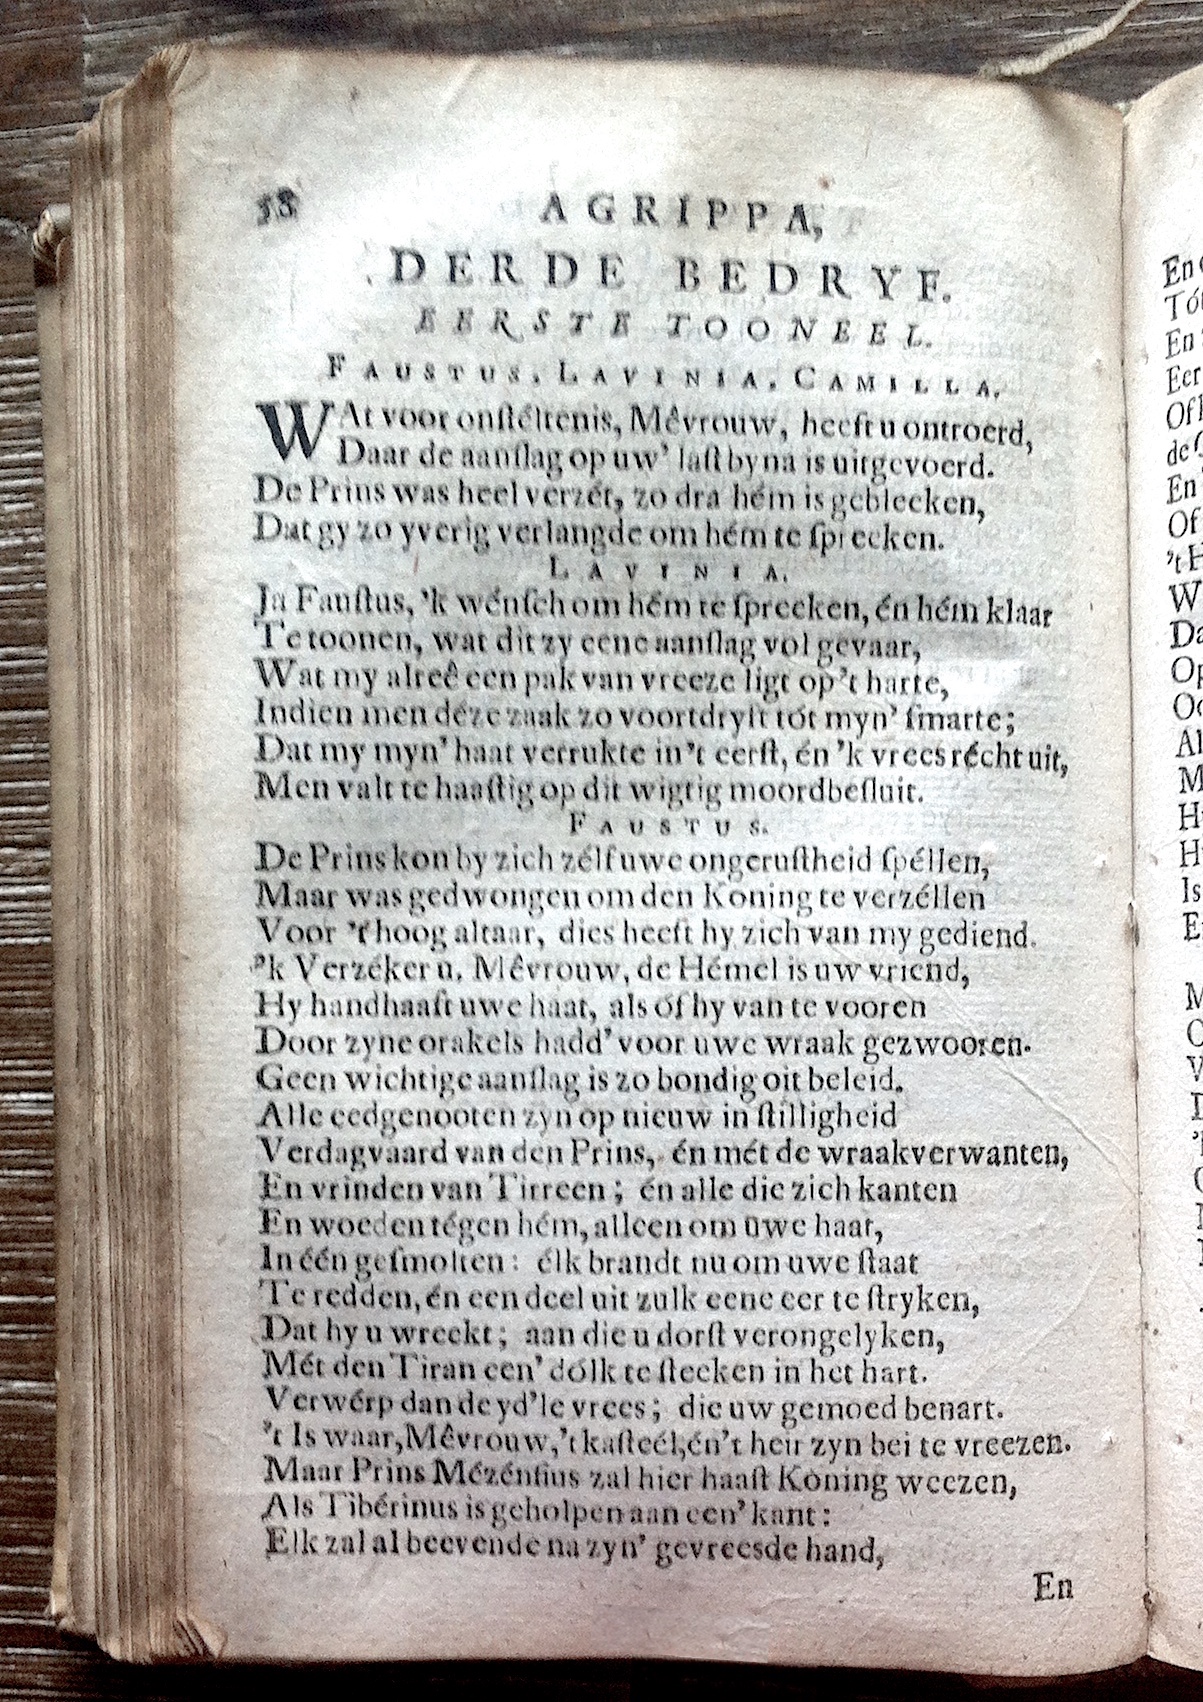 38 AGRIPPA,
DERDE BEDRYF.
EERSTE TOONEEL.
FAUSTUS, LAVINIA, CAMILLA.
WAt voor onſtéltenis, Mêvrouw, heeft u ontroerd,
Daar de aanſlag op uw' laſt byna is uitgevoerd.
De Prins was heel verzét, zo dra hém is gebleeken,
Dat gy zo yverig verlangde om hém te ſpreeken.
LAVINIA.
Ja Fauſtus, 'k wénſch om hém te ſpreeken, én hém klaar
Te toonen, wat dit zy eene aanſlag vol gevaar,
Wat my alreê een pak van vreeze ligt op 't harte,
Indien men déze zaak zo voortdryft tót myn' ſmarte;
Dat my myn' haat verrukte in 't eerſt, én 'k vrees récht uit,
Men valt te haaſtig op dit wigtig moordbeſluit.
FAUSTUS.
De Prins kon by zich zélf uwe ongeruſtheid ſpéllen,
Maar was gedwongen om den Koning te verzéllen
Voor 't hoog altaar, dies heeft hy zich van my gediend.
'k Verzéker u, Mêvrouw, de Hémel is uw vriend,
Hy handhaaft uwe haat, als óf hy van te vooren
Door zyne orakels hadd' voor uwe wraak gezwooren.
Geen wichtige aanſlag is zo bondig oit beleid.
Alle eedgenooten zyn op nieuw in ſtilligheid
Verdagvaard van den Prins, én mét de wraakverwanten,
En vrinden van Tirreen; én alle die zich kanten
En woeden tégen hém, alleen om uwe haat,
In één geſmolten: élk brandt nu om uwe ſtaat
Te redden, én een deel uit zulk eene eer te ſtryken,
Dat hy u wreekt; aan die u dorſt verongelyken,
Mét den Tiran een' dólk te ſteeken in het hart.
Verwérp dan de yd'le vrees; die uw gemoed benart.
't Is waar, Mêvrouw, 't kaſteél, én 't heir zyn bei te vreezen.
Maar Prins Mézéntius zal hier haaſt Koning weezen,
Als Tibérinus is geholpen aan een' kant:
Elk zal al beevende na zyn' gevreesde hand,
En